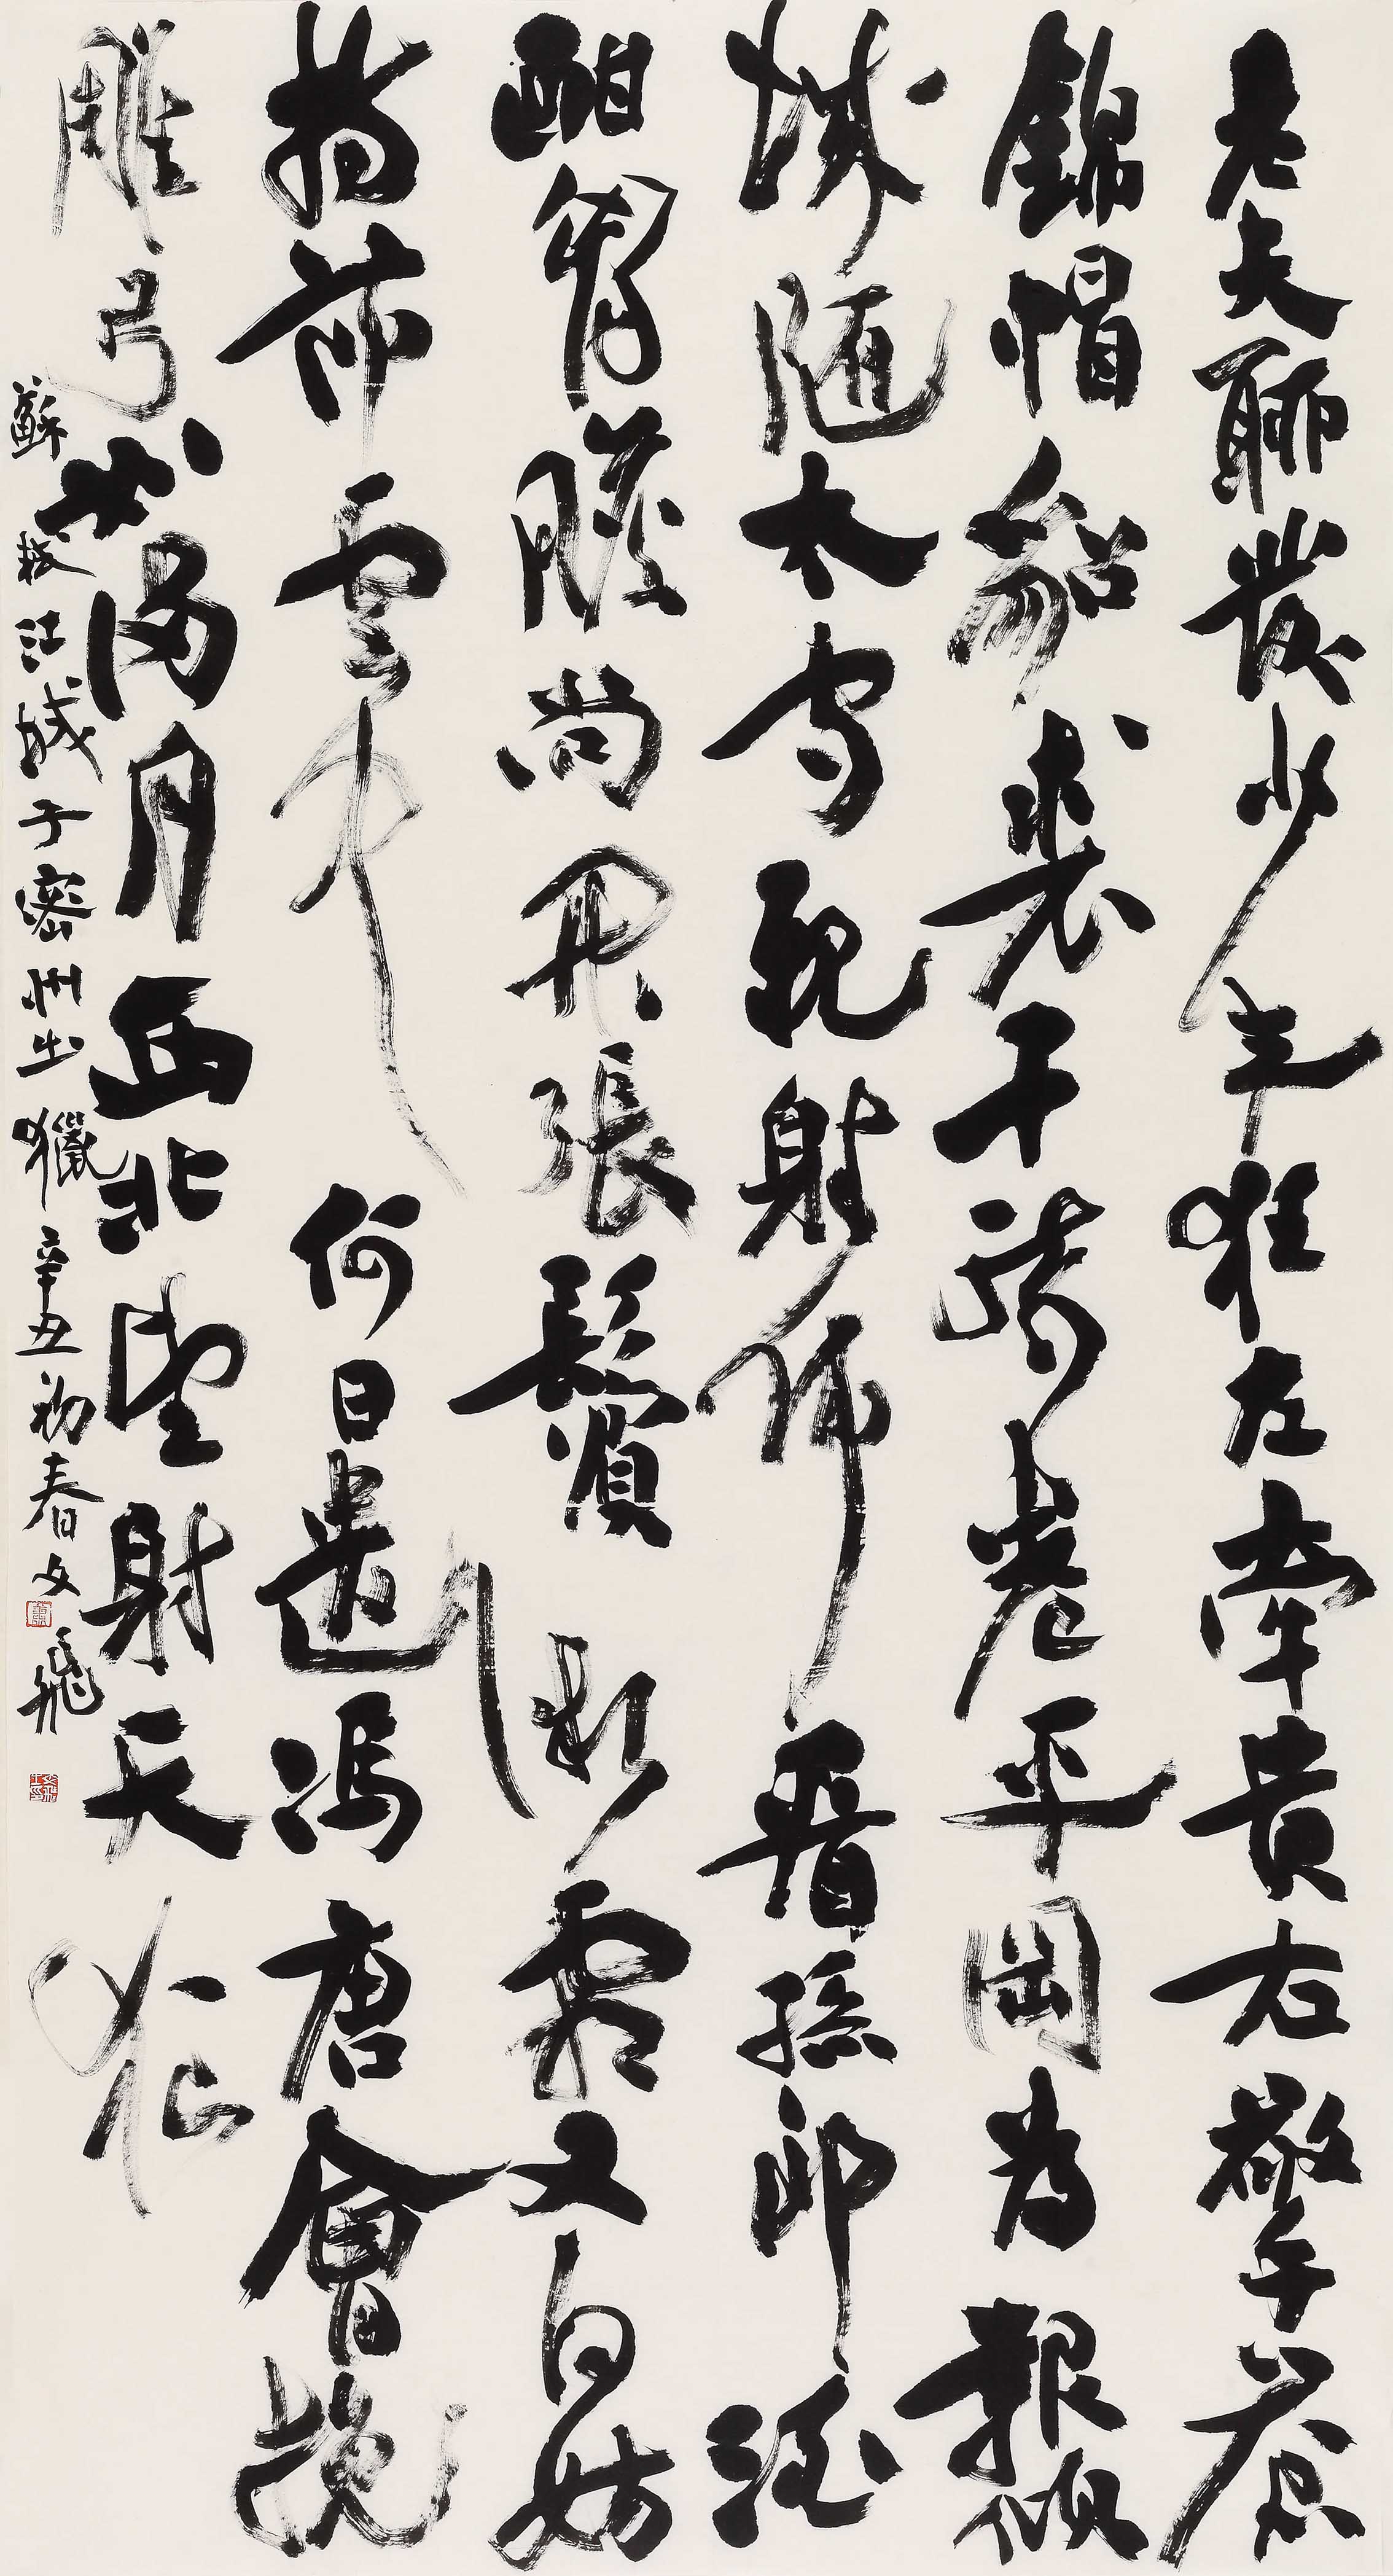 老夫聊發少年狂左牽黃右擎蒼
錦帽貂裘千騎卷平岡為報傾
城隨太守親射虎看孫郎酒
酣胸膽尚開張鬢微霜又何妨
持節雲中何日遣馮唐會挽
雕弓如滿月西北望射天狼
蘇軾江城子密州出獵辛丑初春文飛